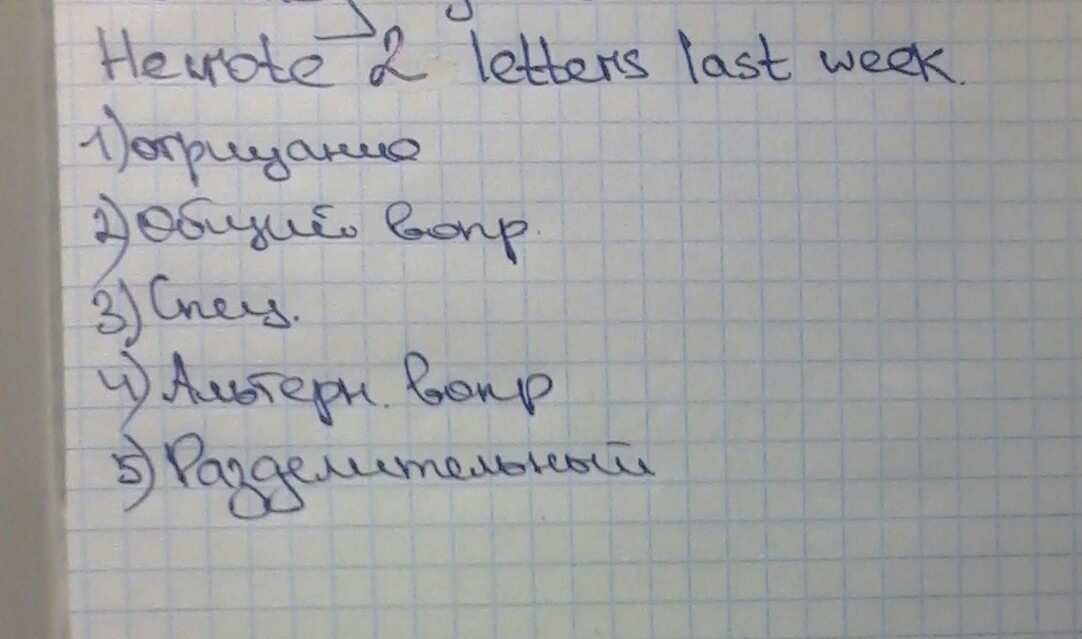 He wrote 2 letters last week.
1) отрицание
2) Общий вопр.
3) Спец.
4) Альтерн. вопр
5) Разделительный